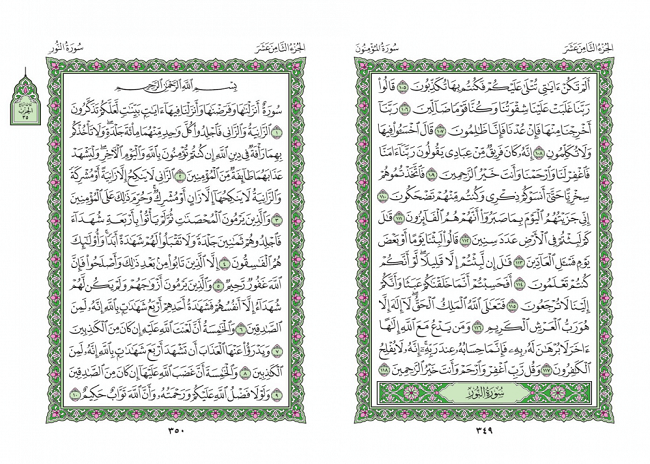 الجُزْءُ الثَّامِنَ عَشَرَ
سُورَةُ المُؤْمِنُونَ
أَلَمْ تَكُنْ ءَايَٰتِى تُتْلَىٰ عَلَيْكُمْ فَكُنتُم بِهَا تُكَذِّبُونَ ١٠٥ قَالُوا۟
رَبَّنَا غَلَبَتْ عَلَيْنَا شِقْوَتُنَا وَكُنَّا قَوْمًا ضَآلِّينَ ١٠٦ رَبَّنَآ
أَخْرِجْنَا مِنْهَا فَإِنْ عُدْنَا فَإِنَّا ظَٰلِمُونَ ١٠٧ قَالَ ٱخْسَـُٔوا۟ فِيهَا
وَلَا تُكَلِّمُونِ ١٠٨ إِنَّهُۥ كَانَ فَرِيقٌ مِّنْ عِبَادِى يَقُولُونَ رَبَّنَآ ءَامَنَّا
فَٱغْفِرْ لَنَا وَٱرْحَمْنَا وَأَنتَ خَيْرُ ٱلرَّٰحِمِينَ ١٠٩ فَٱتَّخَذْتُمُوهُمْ
سِخْرِيًّا حَتَّىٰٓ أَنسَوْكُمْ ذِكْرِى وَكُنتُم مِّنْهُمْ تَضْحَكُونَ ١١٠
إِنِّى جَزَيْتُهُمُ ٱلْيَوْمَ بِمَا صَبَرُوٓا۟ أَنَّهُمْ هُمُ ٱلْفَآئِزُونَ ١١١ قَٰلَ
كَمْ لَبِثْتُمْ فِى ٱلْأَرْضِ عَدَدَ سِنِينَ ١١٢ قَالُوا۟ لَبِثْنَا يَوْمًا أَوْ بَعْضَ
يَوْمٍ فَسْـَٔلِ ٱلْعَآدِّينَ ١١٣ قَٰلَ إِن لَّبِثْتُمْ إِلَّا قَلِيلًا لَّوْ أَنَّكُمْ
كُنتُمْ تَعْلَمُونَ ١١٤ أَفَحَسِبْتُمْ أَنَّمَا خَلَقْنَٰكُمْ عَبَثًا وَأَنَّكُمْ
إِلَيْنَا لَا تُرْجَعُونَ ١١٥ فَتَعَٰلَى ٱللَّهُ ٱلْمَلِكُ ٱلْحَقُّ لَآ إِلَٰهَ إِلَّا
هُوَ رَبُّ ٱلْعَرْشِ ٱلْكَرِيمِ ١١٦ وَمَن يَدْعُ مَعَ ٱللَّهِ إِلَٰهًا
ءَاخَرَ لَا بُرْهَٰنَ لَهُۥ بِهِۦ فَإِنَّمَا حِسَابُهُۥ عِندَ رَبِّهِۦٓ إِنَّهُۥ لَا يُفْلِحُ
ٱلْكَٰفِرُونَ ١١٧ وَقُل رَّبِّ ٱغْفِرْ وَٱرْحَمْ وَأَنتَ خَيْرُ ٱلرَّٰحِمِينَ ١١٨
سُورَةُ النُّورِ
٣٤٩
الجُزْءُ الثَّامِنَ عَشَرَ
سُورَةُ النُّورِ
بِسْمِ ٱللَّهِ ٱلرَّحْمَٰنِ ٱلرَّحِيمِ
سُورَةٌ أَنزَلْنَٰهَا وَفَرَضْنَٰهَا وَأَنزَلْنَا فِيهَآ ءَايَٰتٍۭ بَيِّنَٰتٍ لَّعَلَّكُمْ تَذَكَّرُونَ
١ ٱلزَّانِيَةُ وَٱلزَّانِى فَٱجْلِدُوا۟ كُلَّ وَٰحِدٍ مِّنْهُمَا مِا۟ئَةَ جَلْدَةٍ وَلَا تَأْخُذْكُم
بِهِمَا رَأْفَةٌ فِى دِينِ ٱللَّهِ إِن كُنتُمْ تُؤْمِنُونَ بِٱللَّهِ وَٱلْيَوْمِ ٱلْءَاخِرِ وَلْيَشْهَدْ
عَذَابَهُمَا طَآئِفَةٌ مِّنَ ٱلْمُؤْمِنِينَ ٢ ٱلزَّانِى لَا يَنكِحُ إِلَّا زَانِيَةً أَوْ مُشْرِكَةً
وَٱلزَّانِيَةُ لَا يَنكِحُهَآ إِلَّا زَانٍ أَوْ مُشْرِكٌ وَحُرِّمَ ذَٰلِكَ عَلَى ٱلْمُؤْمِنِينَ
٣ وَٱلَّذِينَ يَرْمُونَ ٱلْمُحْصَنَٰتِ ثُمَّ لَمْ يَأْتُوا۟ بِأَرْبَعَةِ شُهَدَآءَ
فَٱجْلِدُوهُمْ ثَمَٰنِينَ جَلْدَةً وَلَا تَقْبَلُوا۟ لَهُمْ شَهَٰدَةً أَبَدًا وَأُو۟لَٰٓئِكَ
هُمُ ٱلْفَٰسِقُونَ ٤ إِلَّا ٱلَّذِينَ تَابُوا۟ مِنۢ بَعْدِ ذَٰلِكَ وَأَصْلَحُوا۟ فَإِنَّ
ٱللَّهَ غَفُورٌ رَّحِيمٌ ٥ وَٱلَّذِينَ يَرْمُونَ أَزْوَٰجَهُمْ وَلَمْ يَكُن لَّهُمْ
شُهَدَآءُ إِلَّآ أَنفُسُهُمْ فَشَهَٰدَةُ أَحَدِهِمْ أَرْبَعُ شَهَٰدَٰتٍۭ بِٱللَّهِ إِنَّهُۥ لَمِنَ
ٱلصَّٰدِقِينَ ٦ وَٱلْخَٰمِسَةُ أَنَّ لَعْنَتَ ٱللَّهِ عَلَيْهِ إِن كَانَ مِنَ ٱلْكَٰذِبِينَ
٧ وَيَدْرَؤُا۟ عَنْهَا ٱلْعَذَابَ أَن تَشْهَدَ أَرْبَعَ شَهَٰدَٰتٍۭ بِٱللَّهِ إِنَّهُۥ لَمِنَ
ٱلْكَٰذِبِينَ ٨ وَٱلْخَٰمِسَةَ أَنَّ غَضَبَ ٱللَّهِ عَلَيْهَآ إِن كَانَ مِنَ ٱلصَّٰدِقِينَ
٩ وَلَوْلَا فَضْلُ ٱللَّهِ عَلَيْكُمْ وَرَحْمَتُهُۥ وَأَنَّ ٱللَّهَ تَوَّابٌ حَكِيمٌ ١٠
٣٥٠
الحزب
٣٥